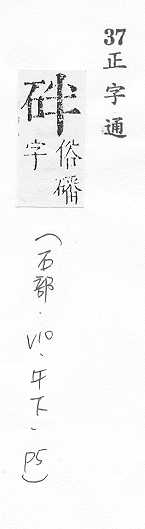 37正字通
俗磻
字
(石部．V10．午下．P5)